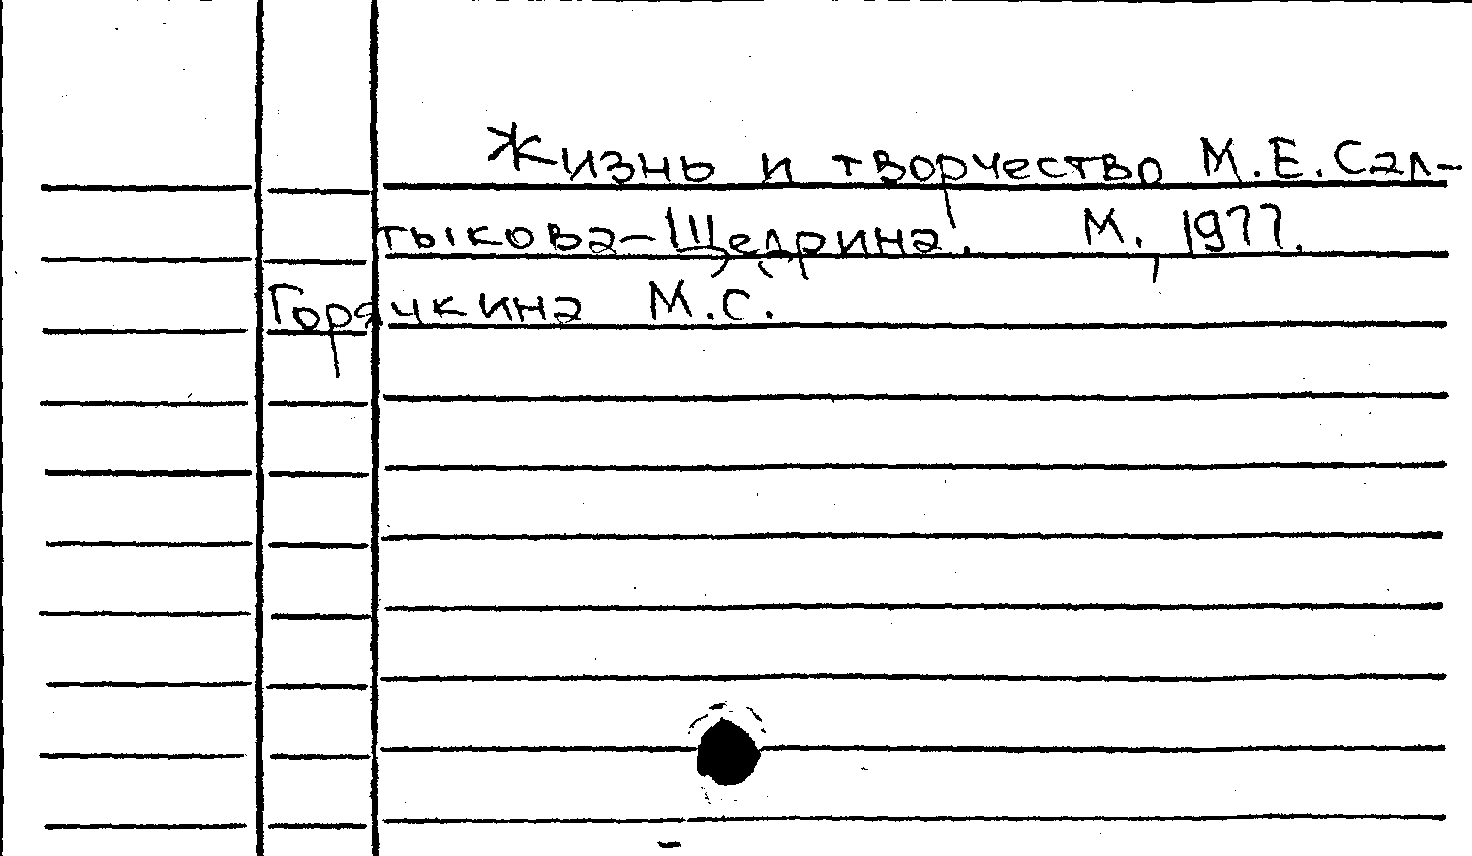 Жизнь и творчество М.Е.Сал-
тыкова-Щедрина. М., 1977.
Горячкина М.С.